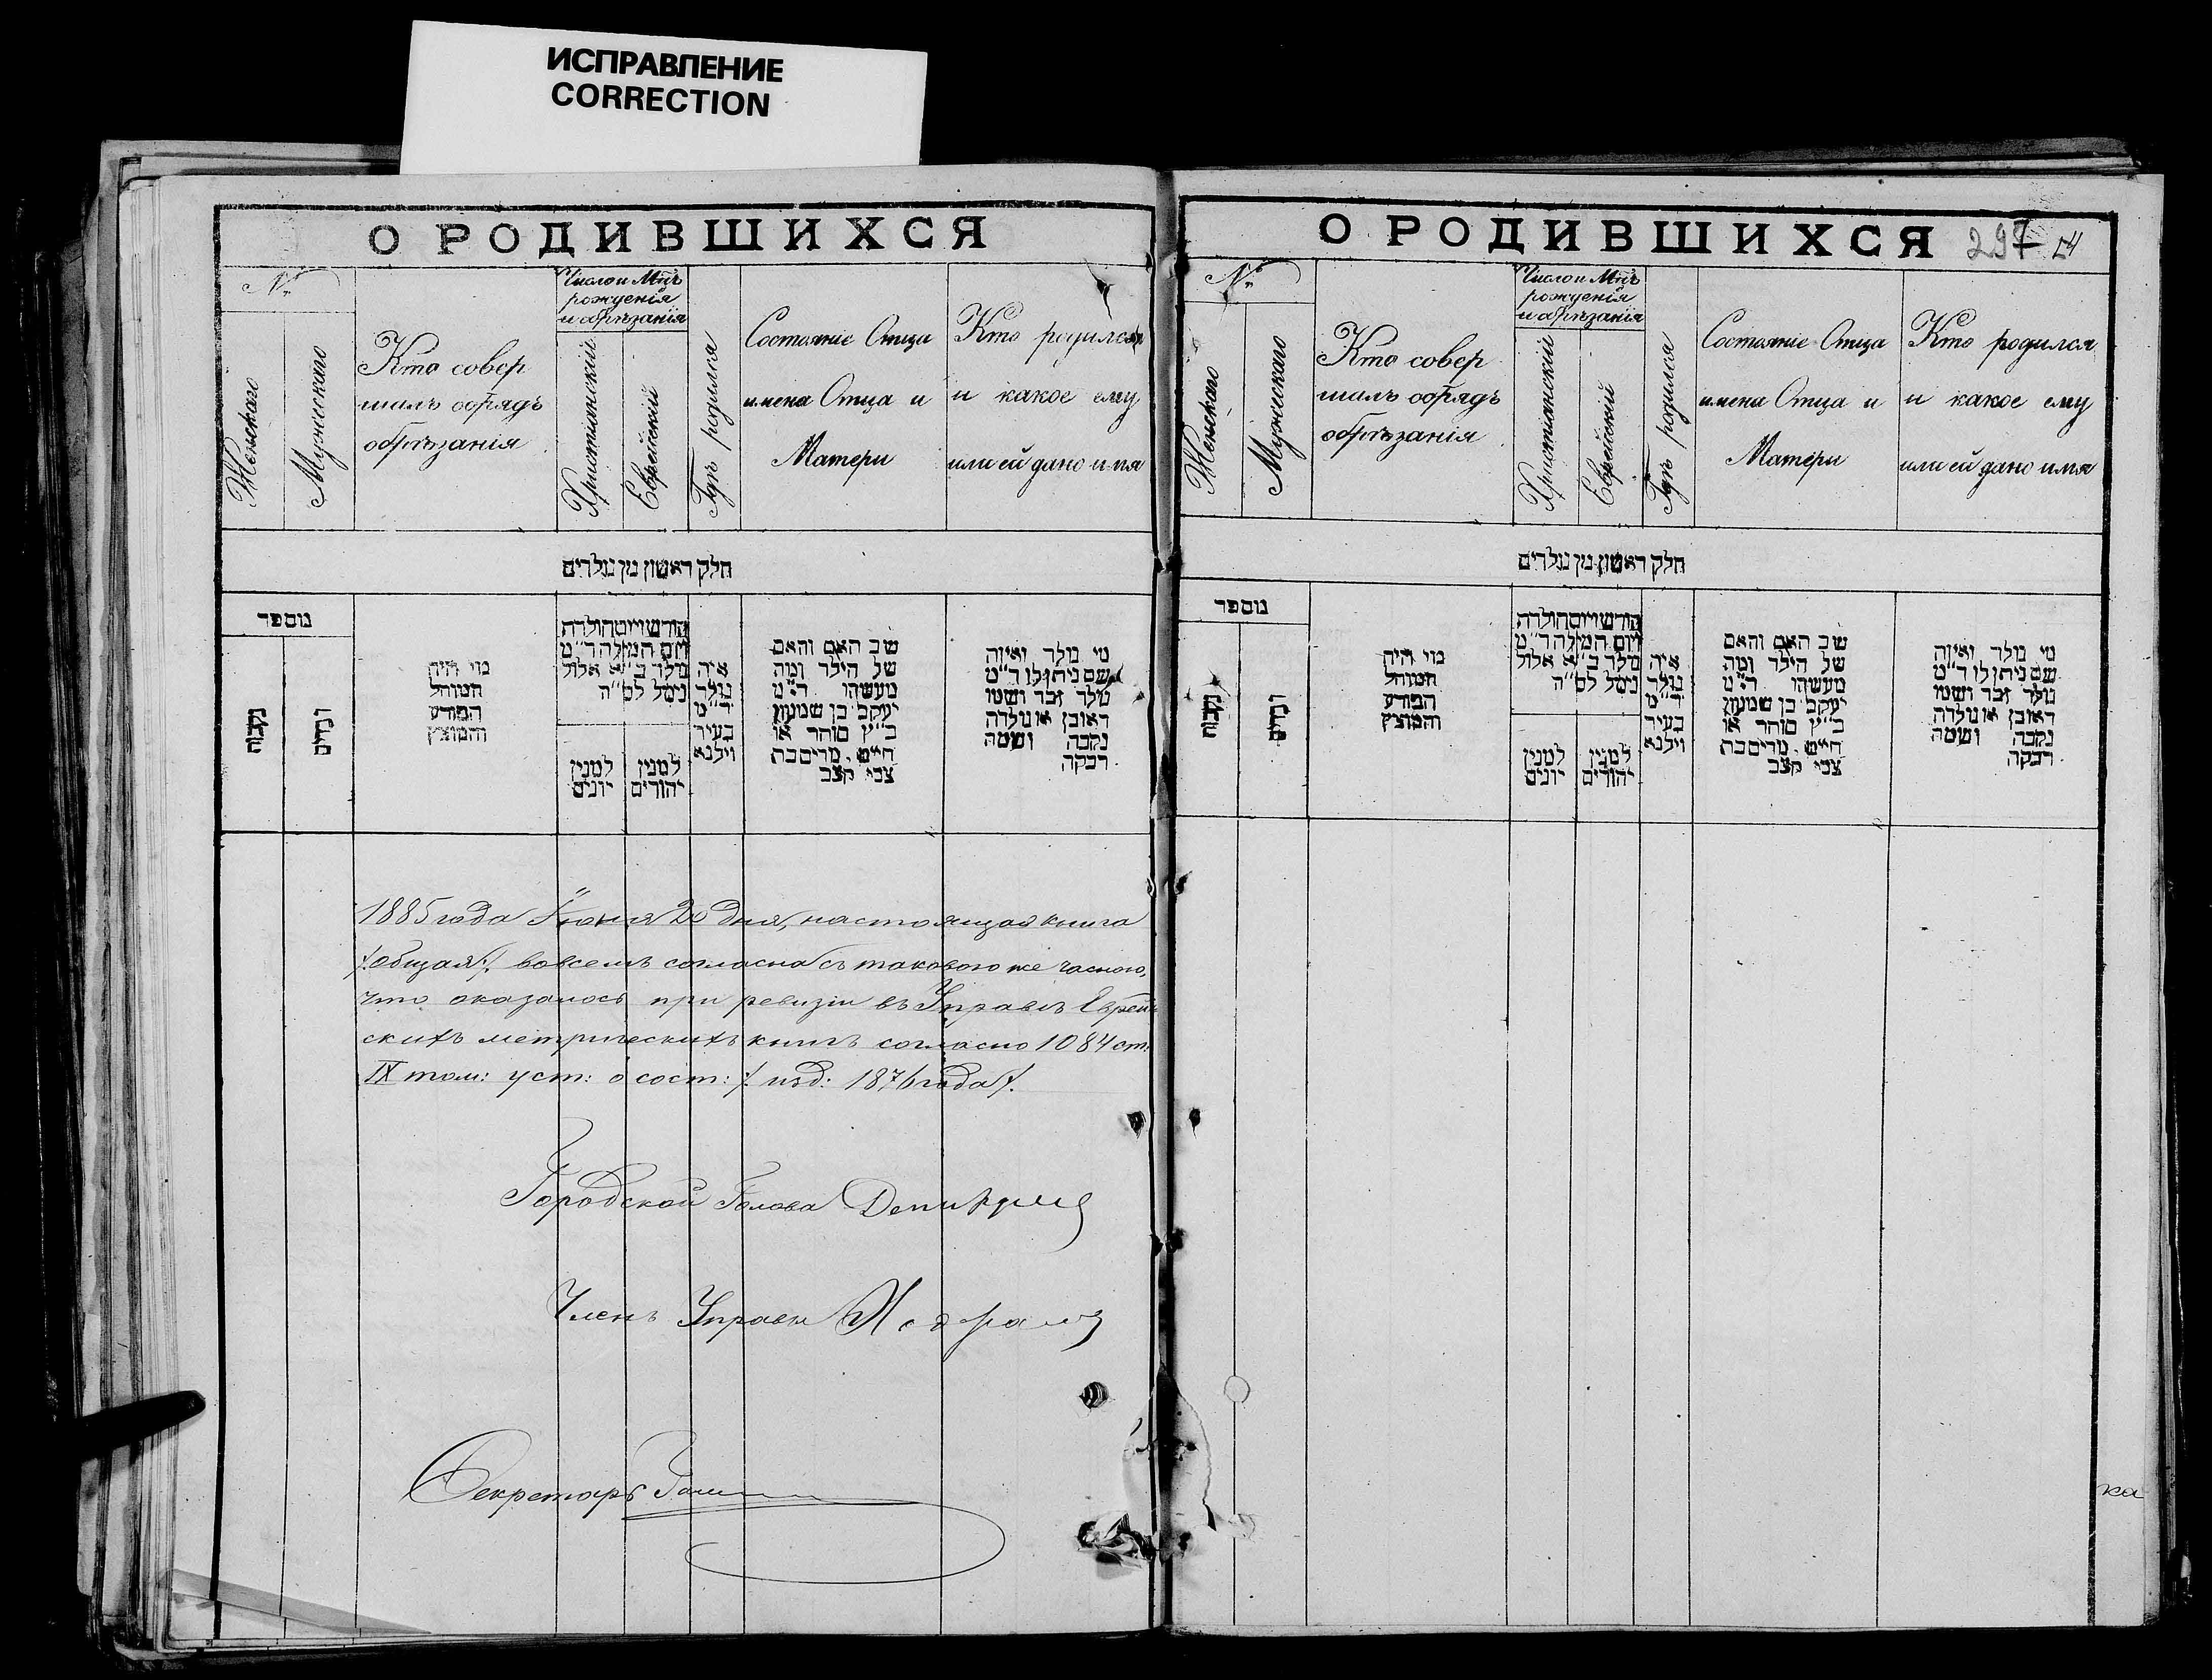 ИСПРАВЛЕНИЕ
CORRECTION
О РОДИВШИХСЯ
№
Женскаго
Мужескаго
Кто совер
шалъ обрядъ
обрѣзанія
Число и Мцъ
рожденія
и обрѣзанія
Христіанскій
Еврейскій
Гдѣ родился
Состояніе Отца
имена Отца и
Матери
Кто родился
и какое ему
или ей дано имя
חלק ראשון מן נולדים
מספר
נקבות
זכרים
מי היה
המוהל
הפורע
והמוצץ
חודש ויום הולדת
ויום המילה ד״מ
נולד ב״א אלול
נימל לס״ה
למנין
יונים
למנין
יהודים
איה
נולד
ד״מ
בעיר
וילנא
שב האם והאם
של הילד ומה
מעשהו ד״מ
יעקב בן שמעון
כ״ץ סוחר או
חייט. מרים בת
צבי קצב
מי נולד ואיזה
שם ניתן לו ד״מ
נולד זכר ושמו
ראובן או נולדה
נקבה ושמה
רבקה
1885 года Іюня 20 дня, настоящая книга
/:общая:/ вовсемъ согласна съ таковою же часною,
что оказалось при ревизіи въ Управѣ Еврей
скихъ метрическихъ книгъ согласно 1084 ст:
IX том: уст: о сост: /: изд: 1876 года /.
Городской Голова
Членъ Управы
Секретарь
О РОДИВШИХСЯ
297 14
№
Женскаго
Мужескаго
Кто совер
шалъ обрядъ
обрѣзанія
Число и Мцъ
рожденія
и обрѣзанія
Христіанскій
Еврейскій
Гдѣ родился
Состояніе Отца
имена Отца и
Матери
Кто родился
и какое ему
или ей дано имя
חלק ראשון מן נולדים
מספר
נקבות
זכרים
מי היה
המוהל
הפורע
והמוצץ
חודש ויום הולדת
ויום המילה ד״מ
נולד ב״א אלול
נימל לס״ה
למנין
יונים
למנין
יהודים
איה
נולד
ד״מ
בעיר
וילנא
שב האם והאם
של הילד ומה
מעשהו ד״מ
יעקב בן שמעון
כ״ץ סוחר או
חייט. מרים בת
צבי קצב
מי נולד ואיזה
שם ניתן לו ד״מ
נולד זכר ושמו
ראובן או נולדה
נקבה ושמה
רבקה
ка